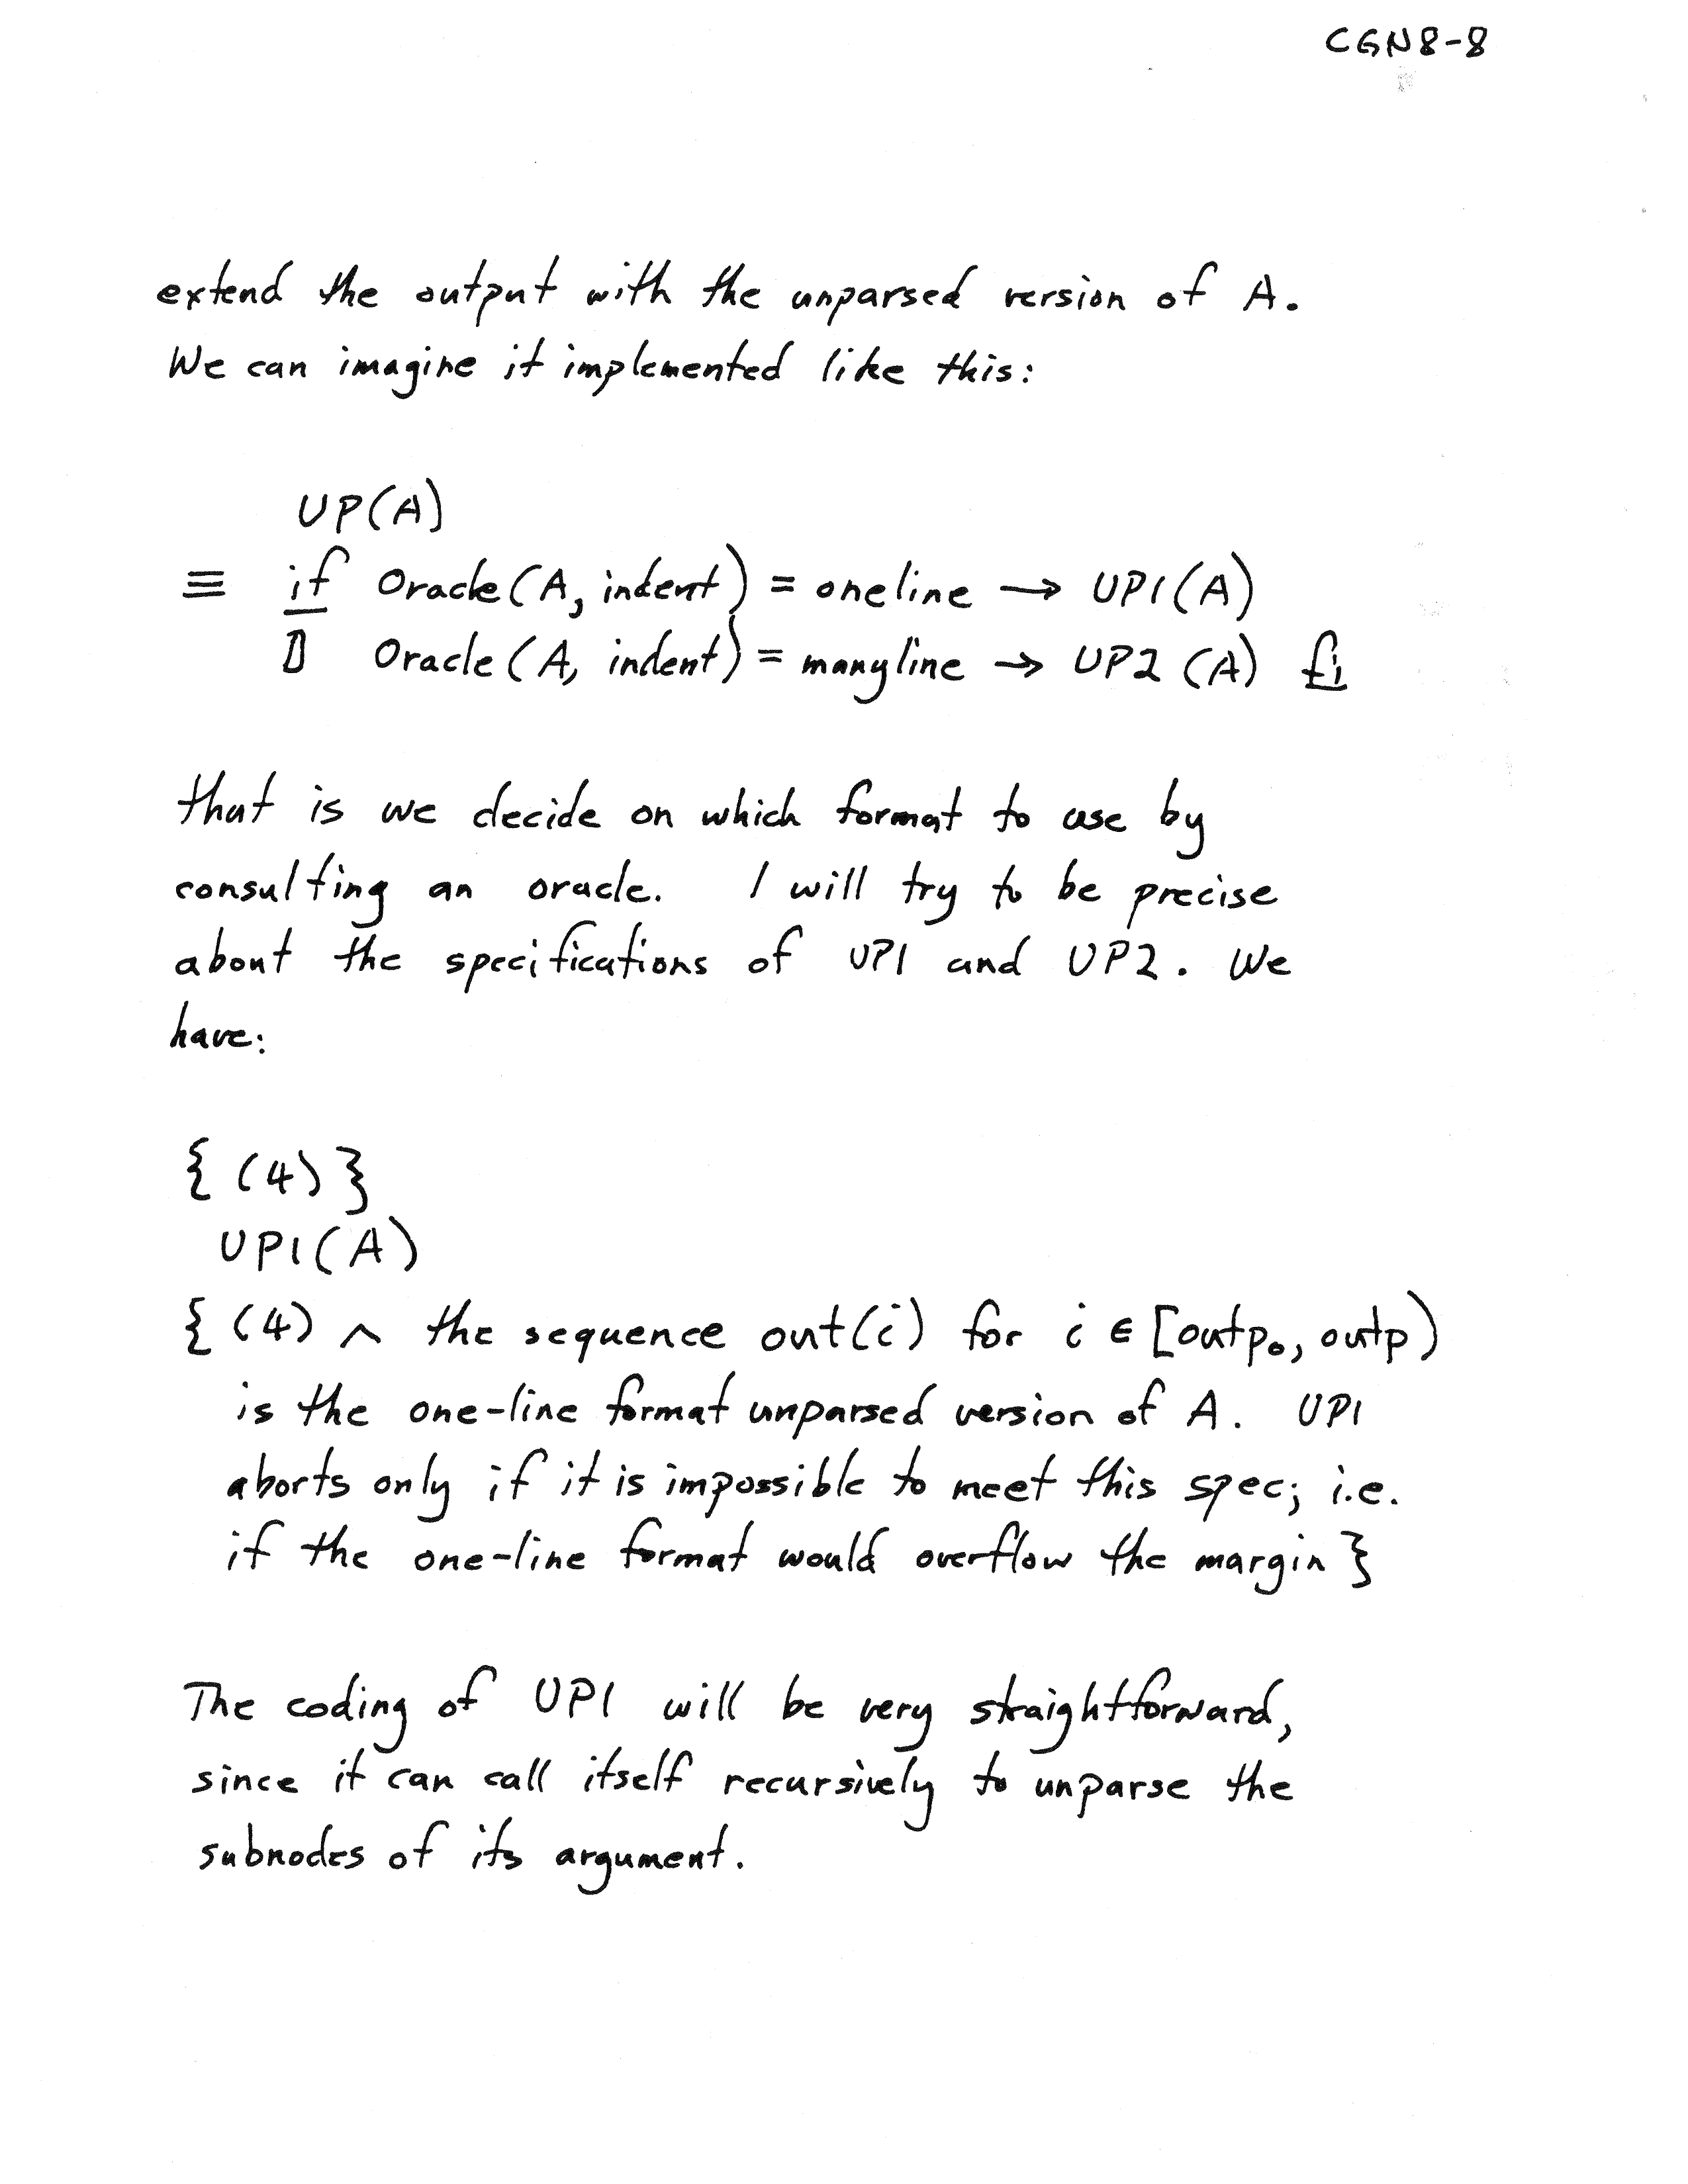 CGN8-8
extend the output with the unparsed version of A.
We can imagine it implemented like this:
UP(A)
≡ if Oracle(A, indent) = oneline → UP1(A)
▯ Oracle(A, indent) = manyline → UP2(A) fi
that is we decide on which format to use by
consulting an oracle. I will try to be precise
about the specifications of UP1 and UP2. We
have:
{(4)}
UP1(A)
{(4) ∧ the sequence out(i) for i ∈ [outp₀, outp)
is the one-line format unparsed version of A. UP1
aborts only if it is impossible to meet this spec; i.e.
if the one-line format would overflow the margin}
The coding of UP1 will be very straightforward,
since it can call itself recursively to unparse the
subnodes of its argument.